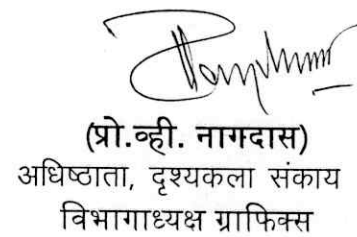 (प्रो.व्ही. नागदास)
अधिष्ठाता, दृश्यकला संकाय
विभागाध्यक्ष ग्राफिक्स